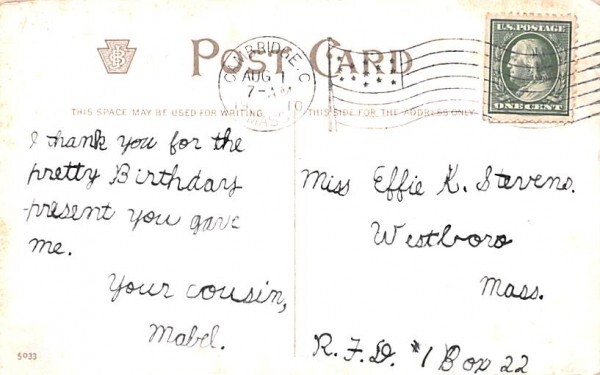 POST CARD
U.S. POSTAGE
AUG 1
7-AM
19 10
MASS
ONE CENT
THIS SPACE MAY BE USED FOR WRITING.
THIS SIDE FOR THE ADDRESS ONLY
I thank you for the
pretty Birthday
present you gave
me.
Your cousin,
Mabel.
Miss Effie K. Stevens.
Westboro
Mass.
R.F.D. #1 Box 22
5033